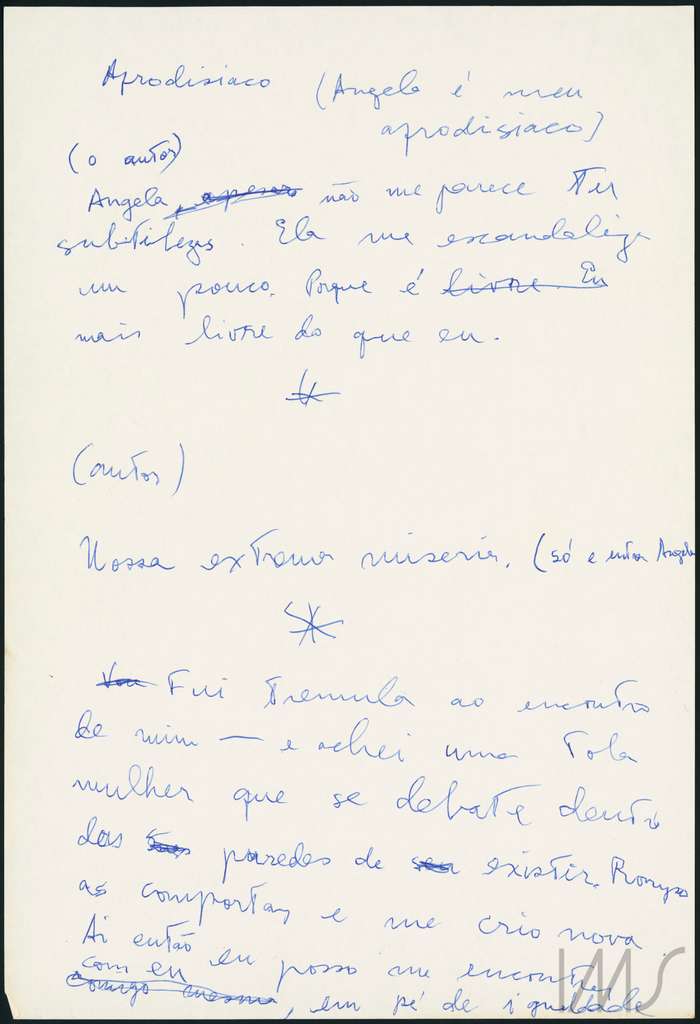 Afrodisiaco (Angela é meu
afrodisiaco)
(o autor)
Angela, apesar não me parece ter
subtilezas. Ela me escandaliza
um pouco. Porque é livre. Eu
mais livre do que eu.
(autor)
Nossa extrema miseria. (só e entra Angela
Vou Fui tremula ao encontro
de mim — e achei uma tola
mulher que se debate dentro
das paredes de existir. Rompo
as comportas e me crio nova
Ai então eu posso me encontrar
com eu
comigo mesma, em pé de igualdade
IMS